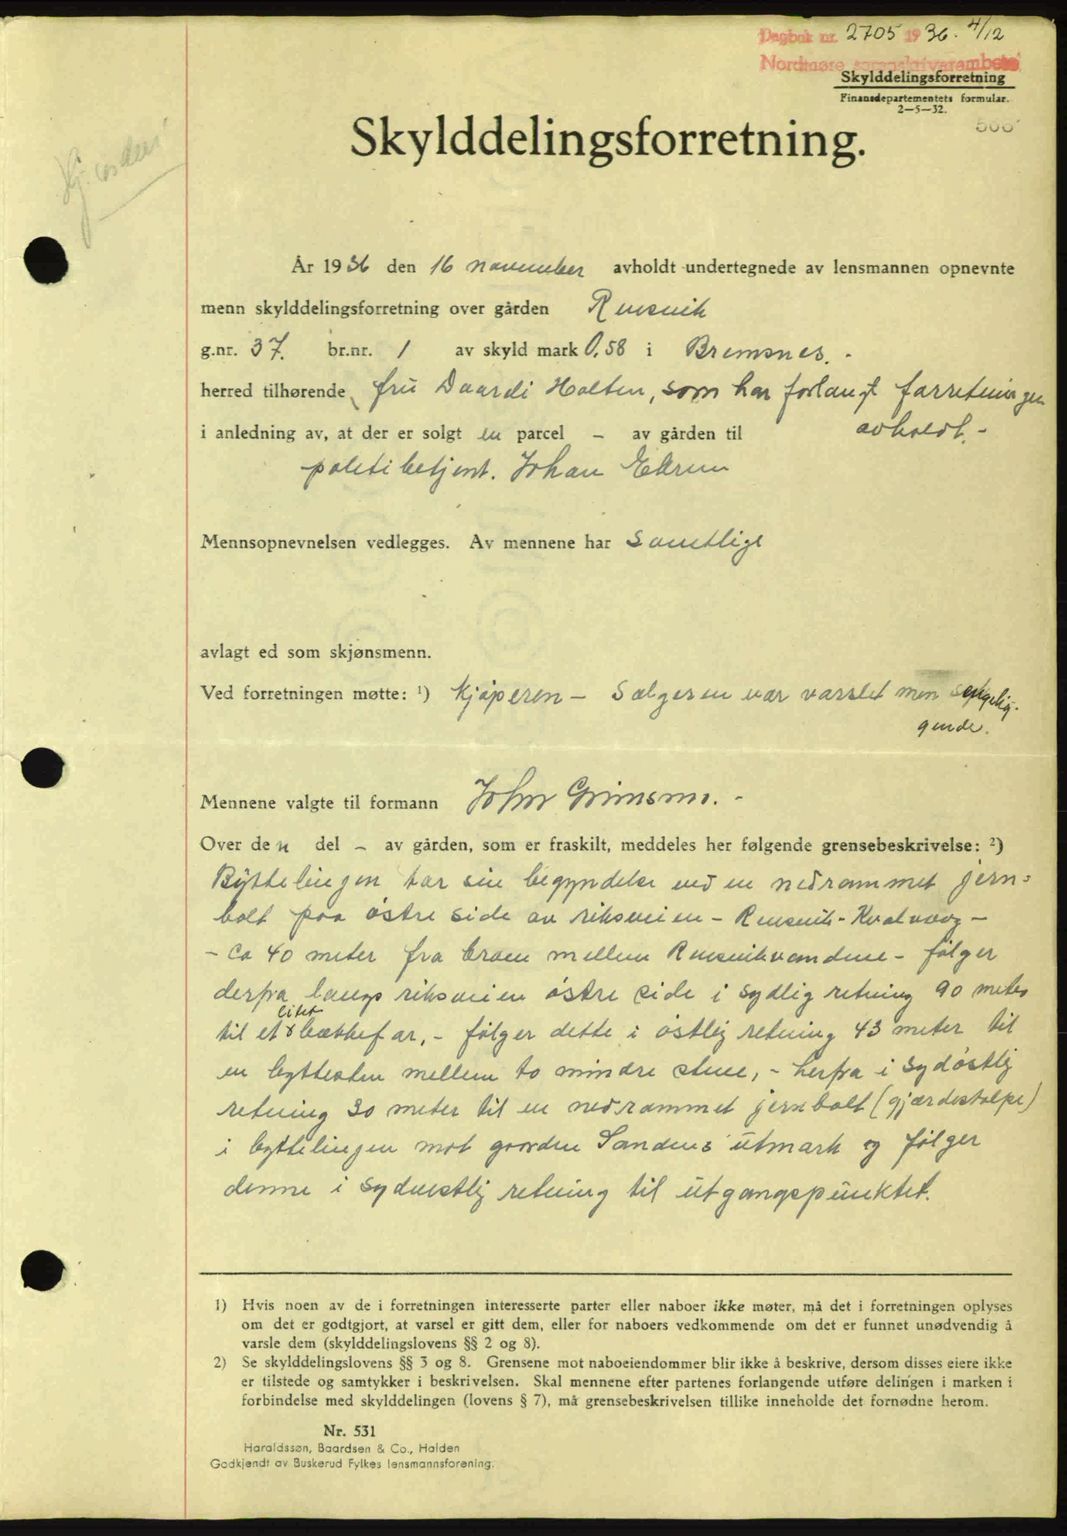 Dagbok nr. 2705 1936. 4/12
Nordmøre sorenskriverembete
Skylddelingsforretning
Finansdepartementets formular.
2—5—32.
Skylddelingsforretning.
År 1936 den 16 november avholdt undertegnede av lensmannen opnevnte
menn skylddelingsforretning over gården Rensvik
g.nr. 37. br.nr. 1 av skyld mark 0,58 i Bremsnes. -
herred tilhørende fru Daardi Holten, som har forlangt forretningen
i anledning av, at der er solgt en parcel - av gården til avholdt. -
politibetjent. Johan Ekrem
Mennsopnevnelsen vedlegges. Av mennene har samtlige
avlagt ed som skjønsmenn.
Ved forretningen møtte: 1) Kjøperen - Sælgeren var varslet men sengelig-
gende.
Mennene valgte til formann John Grimsmo. -
Over den del - av gården, som er fraskilt, meddeles her følgende grensebeskrivelse: 2)
Byttelingen tar sin begyndelse ved en nedrammet jern=
bolt paa østre side av riksveien - Rensvik - Kvalvaag -
- ca 40 meter fra broen mellem Rensvikvandene - følger
derfra langs riksveien østre side i sydlig retning 90 meter
til et litet bækkefar, - følger dette i østlig retning 43 meter til
en byttesten mellem to mindre stene, - herfra i sydøstlig
retning 30 meter til en nedrammet jernbolt (gjærdestolpe)
i byttelingen mot gaarden Sandens utmark og følger
denne i sydvestlig retning til utgangspunktet.
1) Hvis noen av de i forretningen interesserte parter eller naboer ikke møter, må det i forretningen oplyses
om det er godtgjort, at varsel er gitt dem, eller for naboers vedkommende om det er funnet unødvendig å
varsle dem (skylddelingslovens §§ 2 og 8).
2) Se skylddelingslovens §§ 3 og 8. Grensene mot naboeiendommer blir ikke å beskrive, dersom disses eiere ikke
er tilstede og samtykker i beskrivelsen. Skal mennene efter partenes forlangende utføre delingen i marken i
forbindelse med skylddelingen (lovens § 7), må grensebeskrivelsen tillike inneholde det fornødne herom.
Nr. 531
Haraldssøn, Baardsen & Co., Halden
Godkjendt av Buskerud Fylkes lensmannsforening.